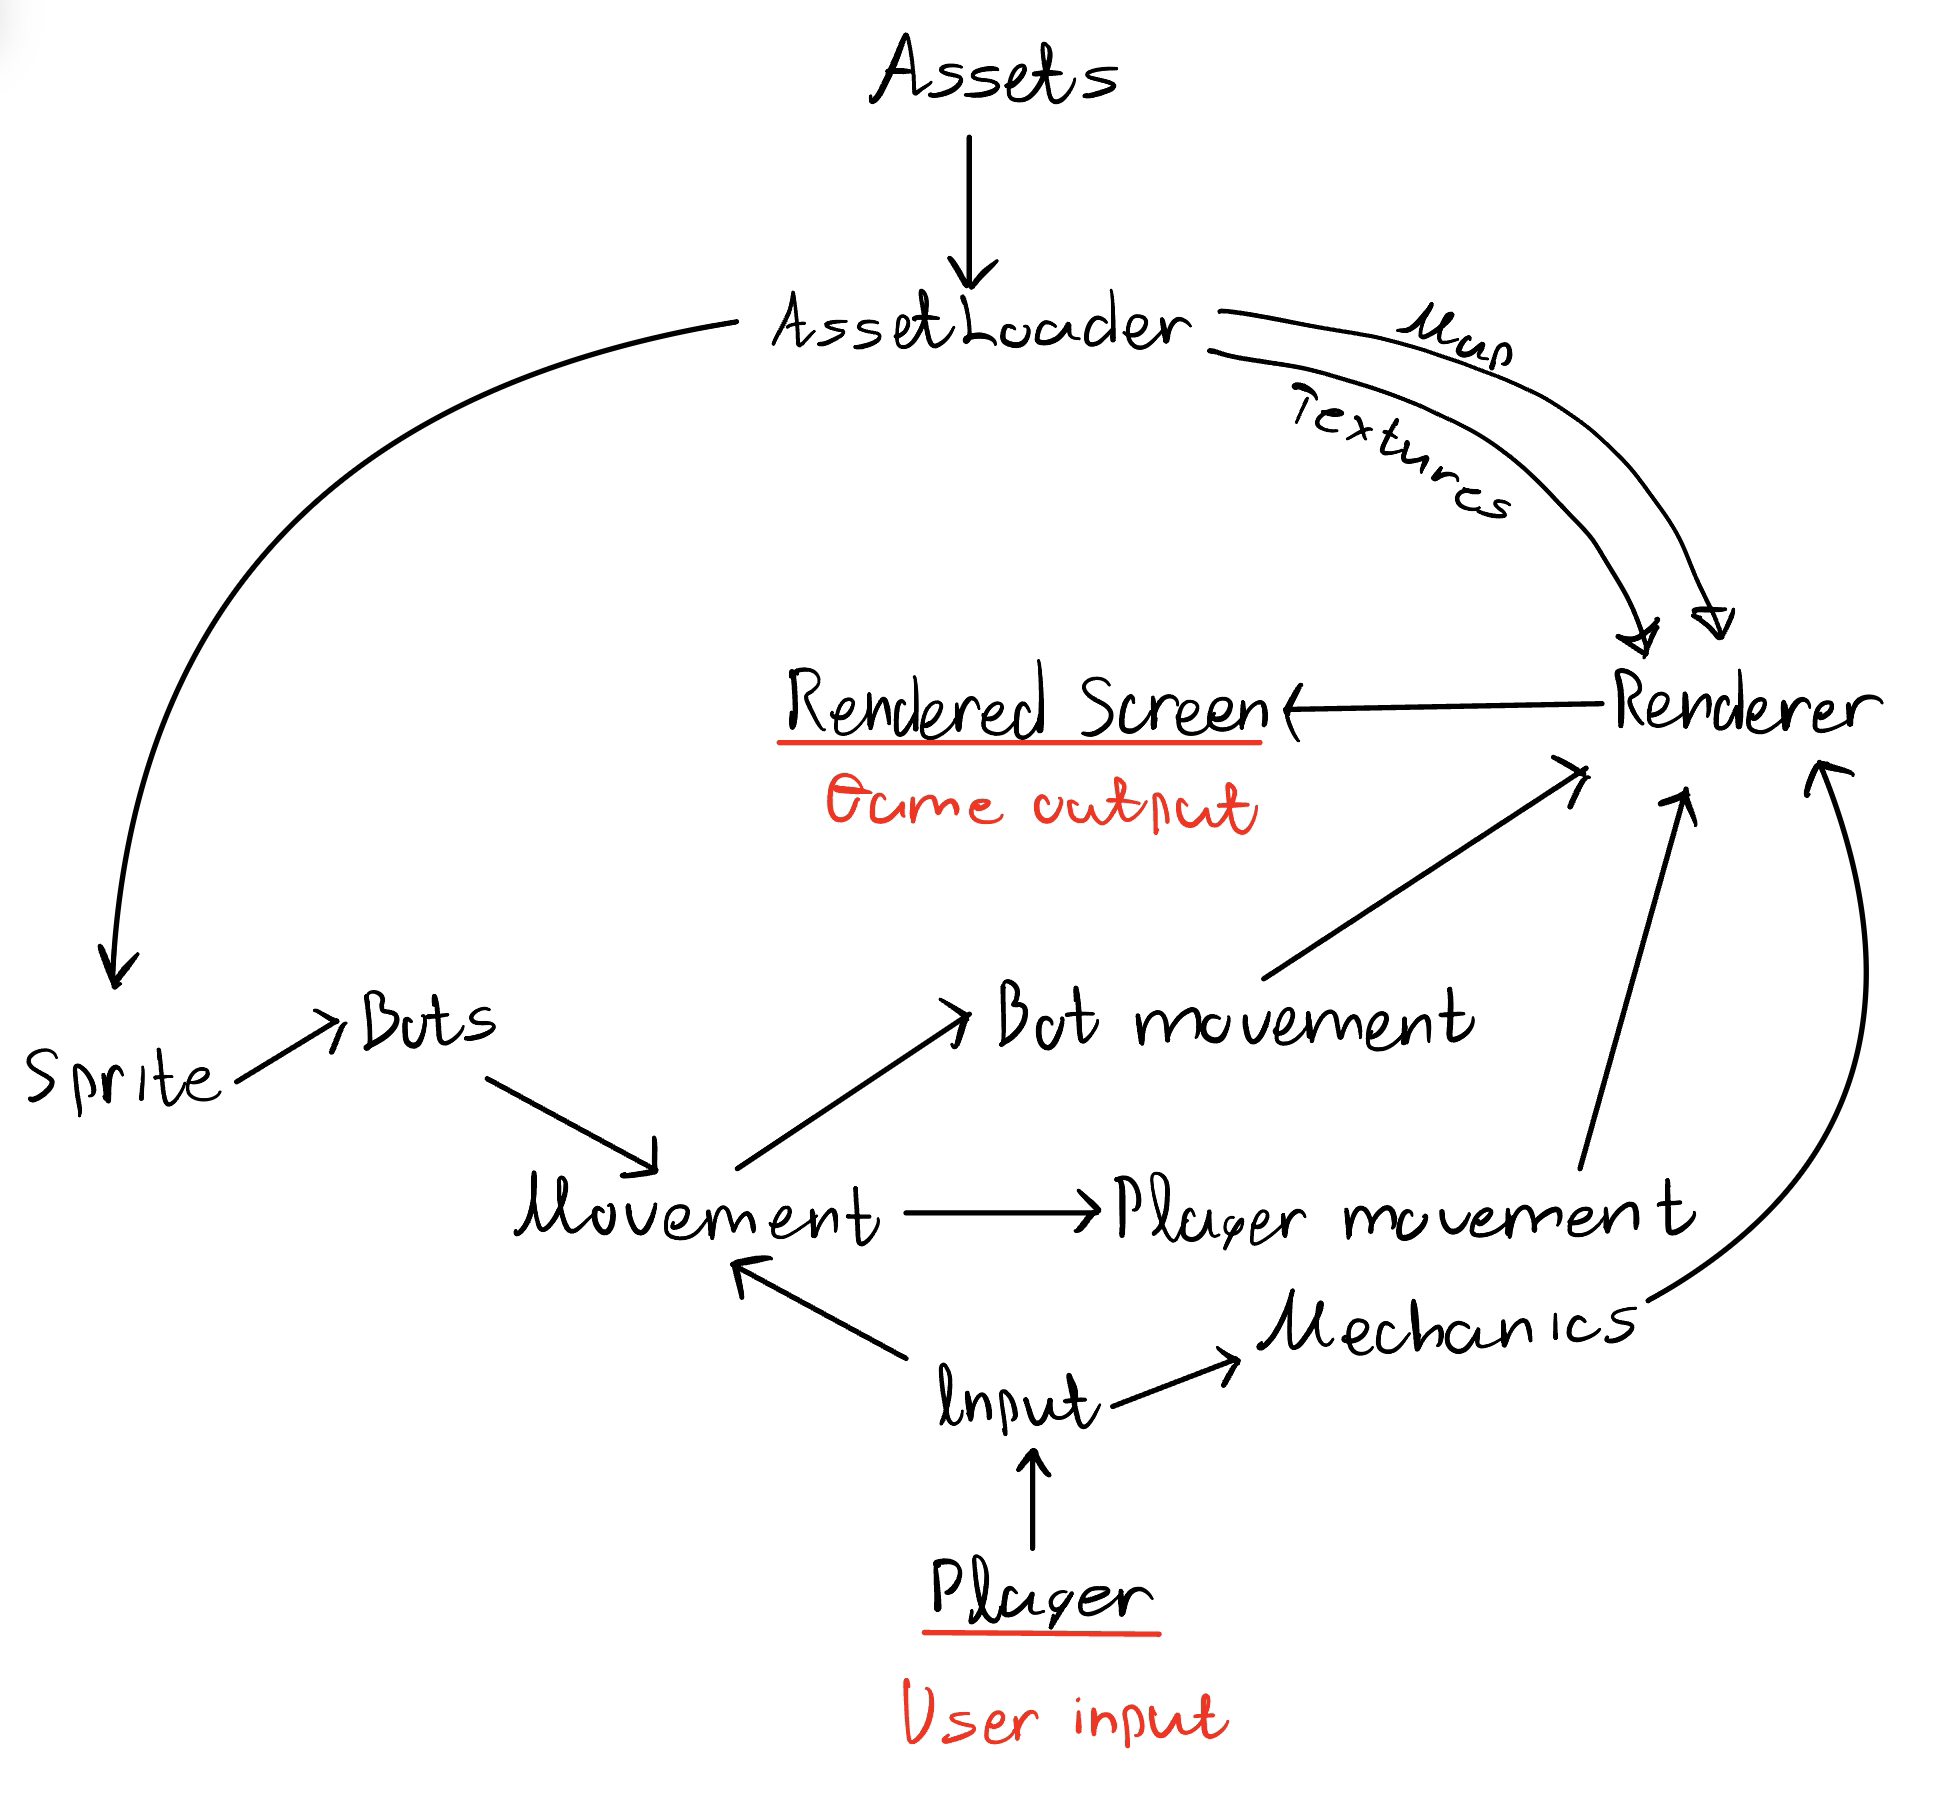 Assets
AssetLoader
Map
Textures
Rendered Screen
Renderer
Game output
Bots
Bot movement
Sprite
Movement
Player movement
Mechanics
Input
Player
User input